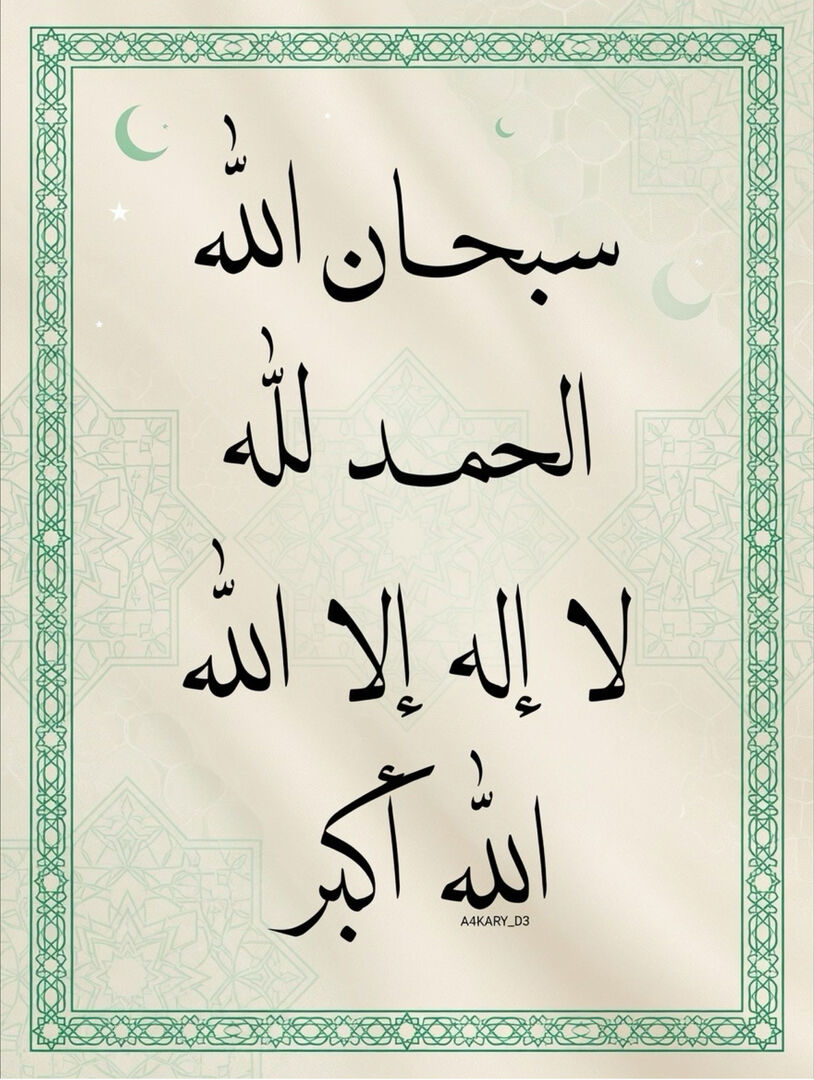 سبحان الله
الحمد لله
لا إله إلا الله
الله أكبر
A4KARY_D3